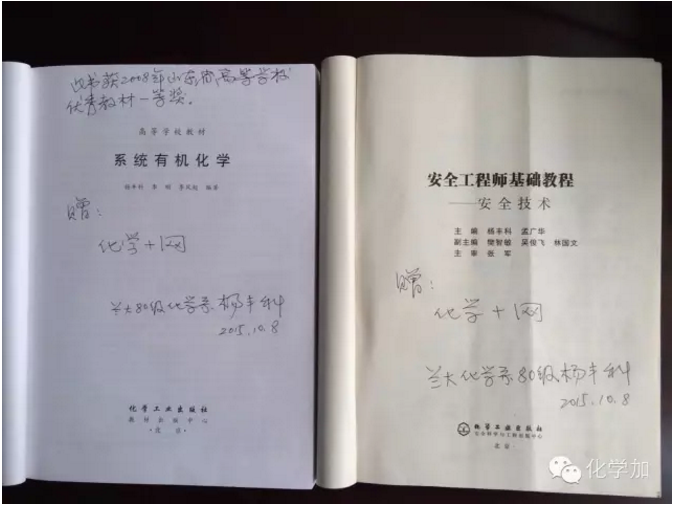 此书获2008年山东省高等学校
优秀教材一等奖。
高等学校教材
系统有机化学
杨丰科 李明 李风起 编著
赠：
化学+网
兰大80级化学系杨丰科
2015.10.8
化学工业出版社
教材出版中心
·北京·
安全工程师基础教程
——安全技术
主编 杨丰科 孟广华
副主编 樊智敏 吴俊飞 林国文
主审 张军
赠：
化学+网
兰大化学系80级杨丰科
2015.10.8
化学工业出版社
安全科学与工程出版中心
·北京·
化学加